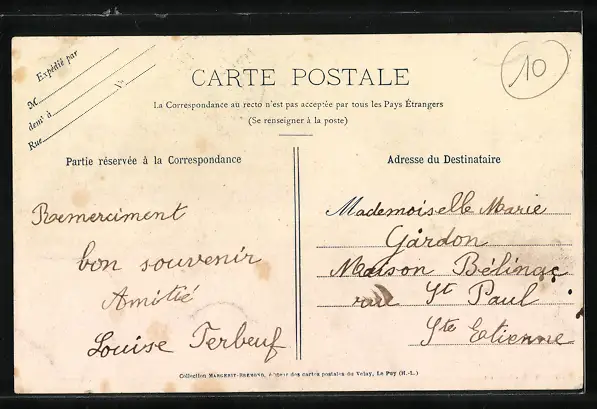 Expédié par
M
demt à
Rue
10
CARTE POSTALE
La Correspondance au recto n'est pas acceptée par tous les Pays Étrangers
(Se renseigner à la poste)
Partie réservée à la Correspondance
Remerciment
bon souvenir
Amitié
Louise Terbeuf
Adresse du Destinataire
Mademoiselle Marie
Gardon
Maison Bélinac
rue St Paul
Ste Etienne
Collection MARGERIT-BRÉMOND, éditeur des cartes postales du Velay, Le Puy (H.-L.)